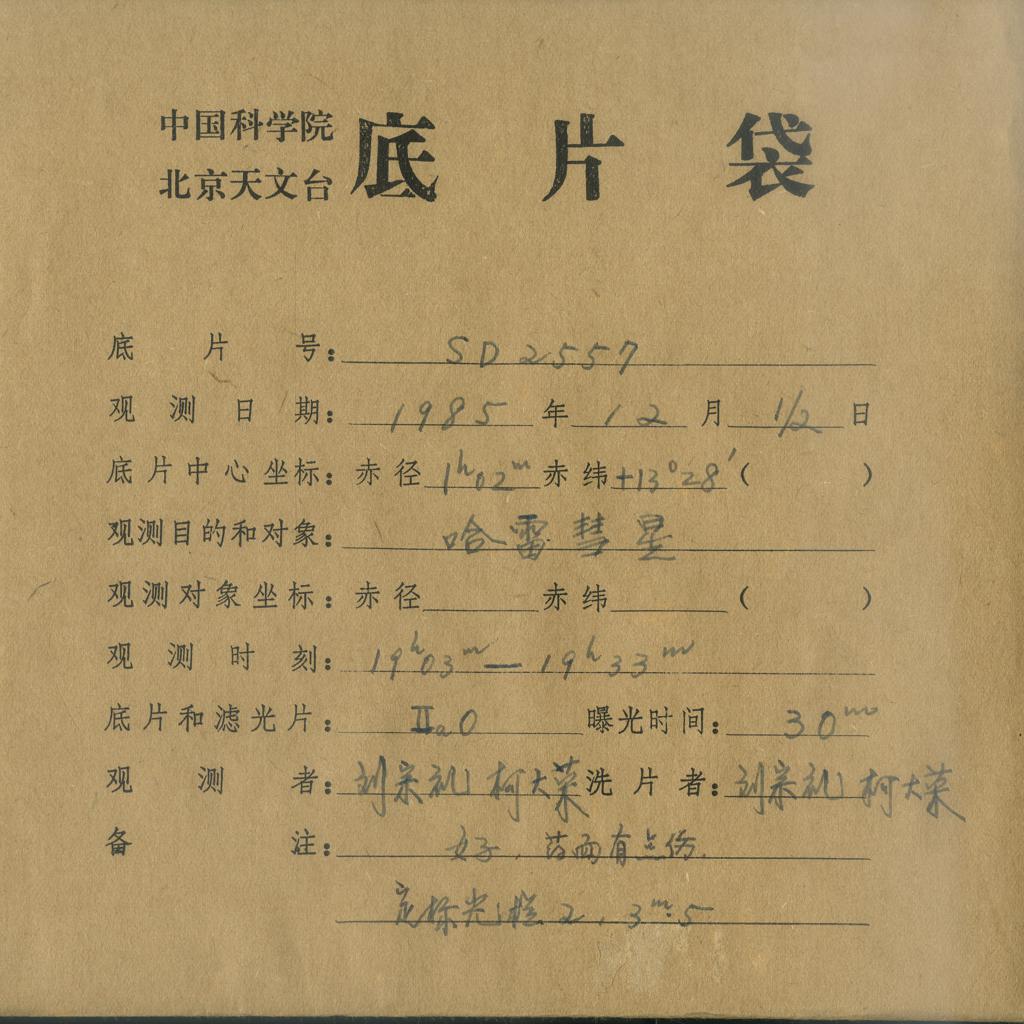 中国科学院
北京天文台 底片袋
底片号: SD2557
观测日期: 1985年12月1/2日
底片中心坐标: 赤径 1h02m 赤纬 +13°28′ ( )
观测目的和对象: 哈雷彗星
观测对象坐标: 赤径 赤纬 ( )
观测时刻: 19h03m — 19h33m
底片和滤光片: IIaO 曝光时间: 30m
观测者: 刘宗礼 柯大荣 洗片者: 刘宗礼 柯大荣
备注: 好, 药面有点伤.
定标光栏 2, 3m.5